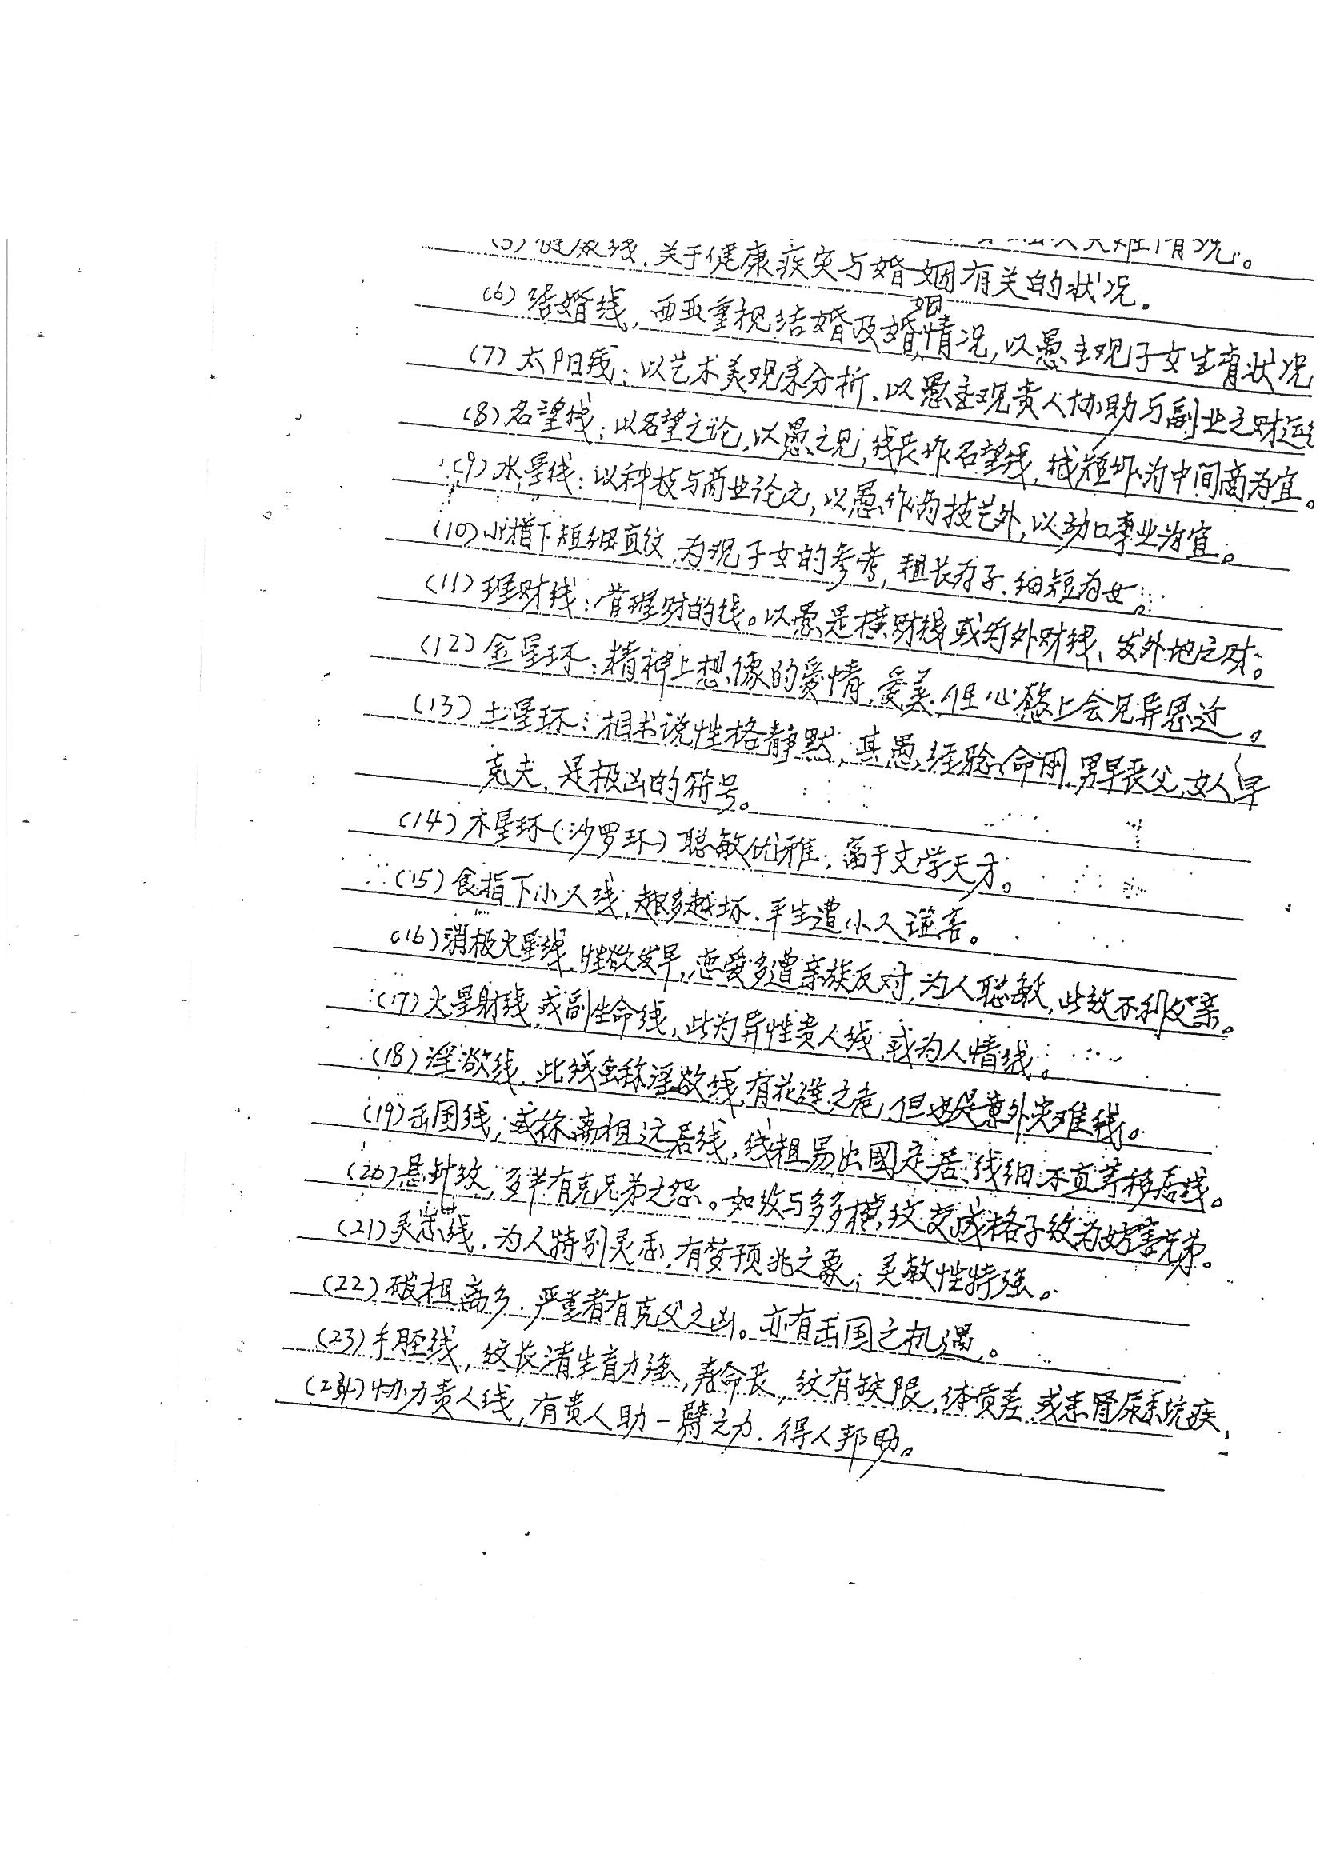 (5)健康线,关于健康疾灾与婚姻有关的状况。
(6)结婚线,西亚重视结婚及婚姻情况,以愚主观子女生育状况
(7)太阳线:以艺术美观来分析,以愚主观贵人协助与副业之财运
(8)名望线:以名望之论,以愚之见,线长作名望线,线短作为中间商为宜。
(9)水星线:以科技与商业论之,以愚作为技艺外,以动口事业为宜。
(10)小指下短细直纹,为观子女的参考,粗长为子,细短为女。
(11)理财线:管理财的线。以愚是横财线或为外财线、发外地之财。
(12)金星环:精神上想像的爱情,爱美,但心态上会见异思迁。
(13)土星环:相书说性格静默,其愚经验命用,男早丧父,女人早
克夫,是极凶的符号。
(14)木星环(沙罗环)聪敏优雅,富于文学天才。
(15)食指下小人线,越多越坏,平生遭小人谣害。
(16)消极火星线,性欲发早,恋爱多遭亲族反对,为人聪敏,此纹不利父亲。
(17)火星射线,或副生命线,此为异性贵人线,或为人情线。
(18)淫欲线,此线虽称淫欲线,有花造之危,但也是意外灾难线。
(19)出国线;或称离祖迁居线,线粗易出國定居,线细不直等移居线。
(20)悬针纹,多半有克兄弟之怨。如纹与多多横纹交成格子纹为妨害兄弟。
(21)灵感线,为人特别灵活,有梦预兆之象;灵敏性特强。
(22)破祖离乡,严重者有克父之凶。亦有出国之机遇。
(23)手胫线,纹长清生育力强,寿命长,纹有缺限,体质差,或患肾尿系统疾,
(24)协力贵人线,有贵人助一臂之力,得人邦助。